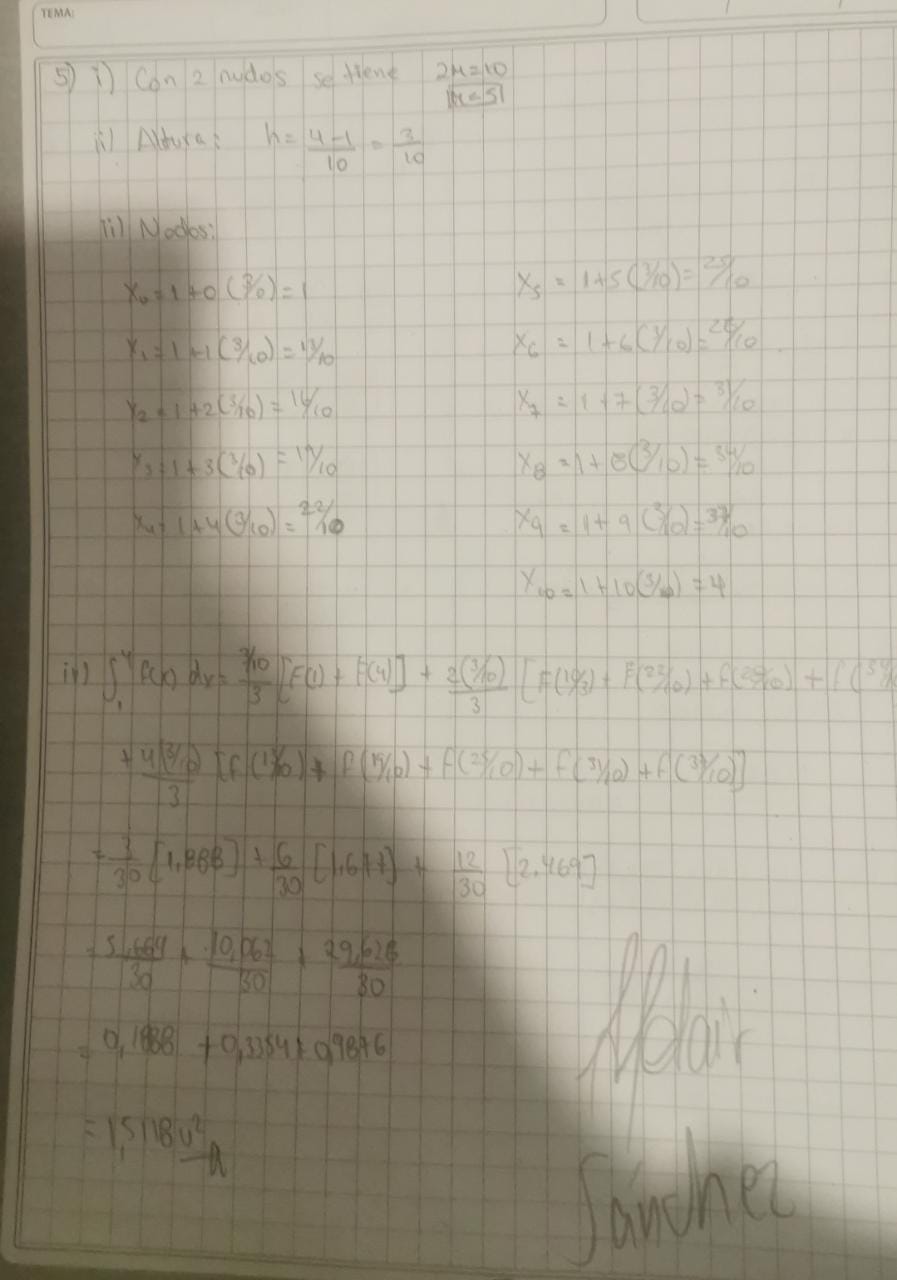 TEMA:
5) i) Con 2 nudos se tiene 2M=10
M=5
ii) Altura: h= (4-1)/10 = 3/10
iii) Nodos:
X₀=1+0(3/10)=1
X₁=1+1(3/10)=13/10
X₂=1+2(3/10)=16/10
X₃=1+3(3/10)=19/10
X₄=1+4(3/10)=22/10
X₅=1+5(3/10)=25/10
X₆=1+6(3/10)=28/10
X₇=1+7(3/10)=31/10
X₈=1+8(3/10)=34/10
X₉=1+9(3/10)=37/10
X₁₀=1+10(3/10)=4
iv) ∫₁⁴ f(x) dx= (3/10)/3 [F(1)+F(4)] + 2(3/10)/3 [F(16/3)+F(22/10)+f(28/10)+f(34/
+4(3/10)/3 [f(13/10)+f(19/10)+f(25/10)+f(31/10)+f(37/10)]
=3/30 [1,888] + 6/30 [1,677] + 12/30 [2.469]
=5,664/30 + 10,062/30 + 29,628/30
=0,1888+0,3354+0,9876
=1,5118u²
Aldair
Sánchez